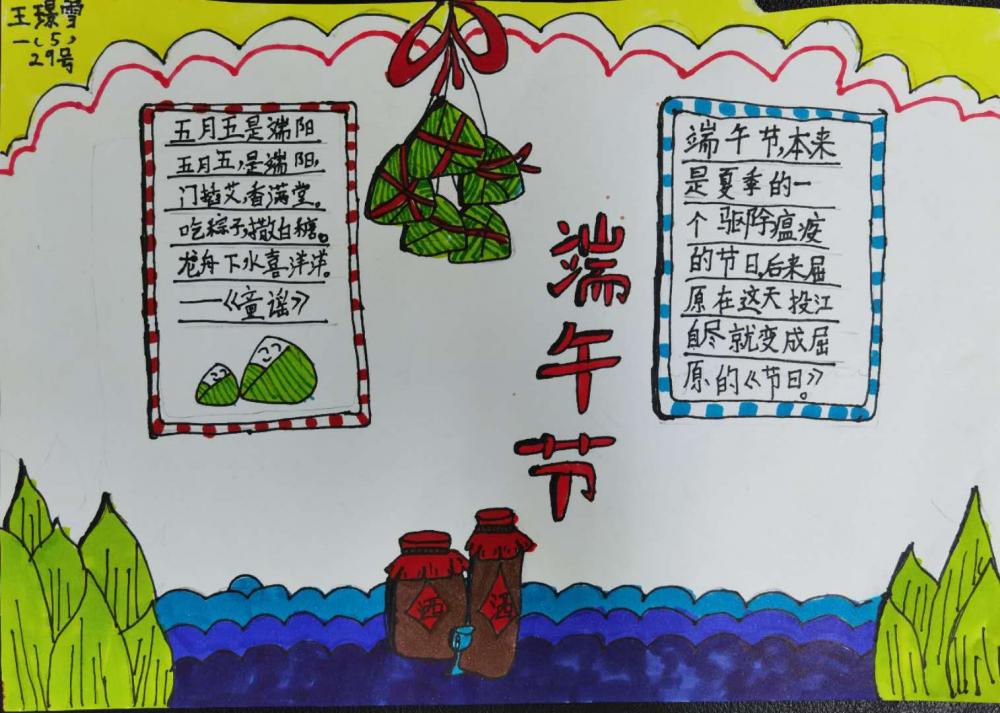 王璟雪
一(5)
29号
五月五是端阳
五月五,是端阳,
门插艾,香满堂。
吃粽子,撒白糖。
龙舟下水喜洋洋。
——《童谣》
端午节
端午节,本来
是夏季的一
个驱除瘟疫
的节日,后来屈
原在这天投江
自尽就变成屈
原的《节日》。
酒
酒